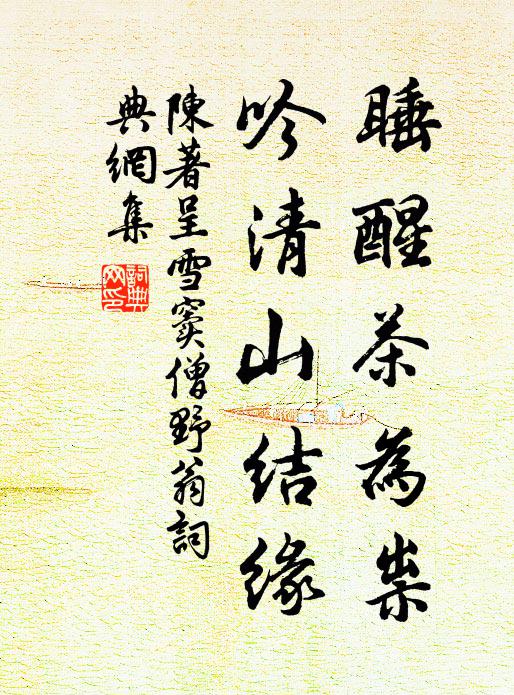 睡醒茶為祟
吟清山結緣
陳著呈雪竇僧野翁詞
典網集
詞典
网印